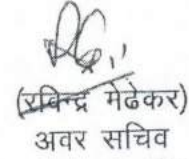 (रविन्द्र मेढेकर)
अवर सचिव